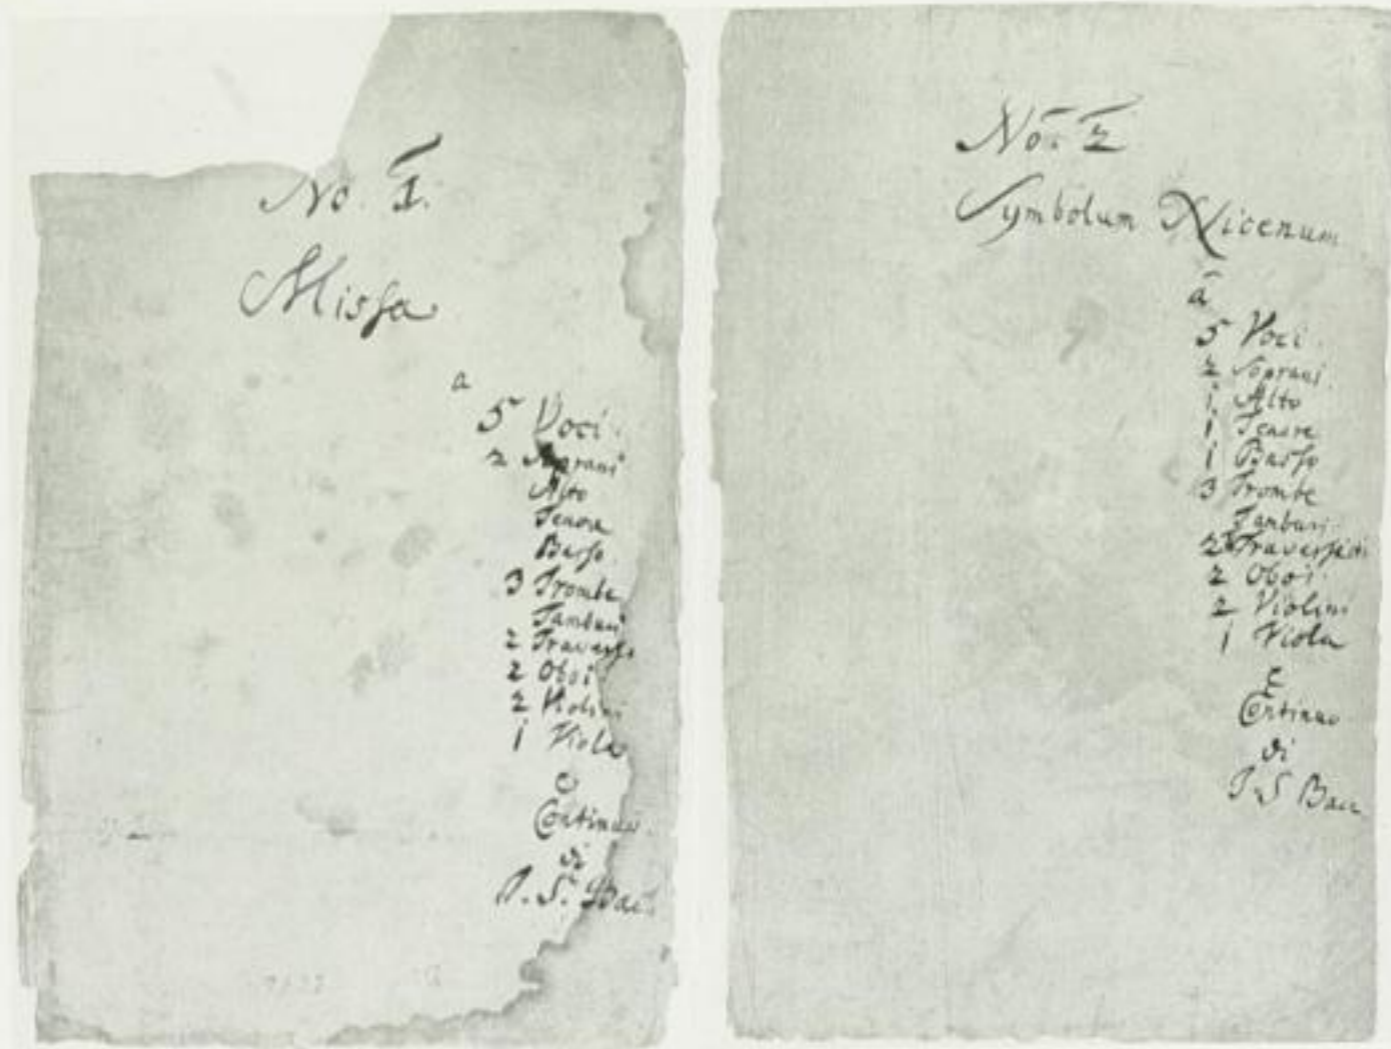 No. 1.
Missa
a
5 Voci.
2 Soprani
Alto
Tenore
Basso
3 Trombe
Tamburi
2 Travers
2 Oboi
2 Violini
1 Viola
e
Continuo.
di
J. S. Bac
No. 2
Symbolum Nicenum
à
5 Voci.
2 Soprani.
1. Alto
1 Tenore
1 Basso
3 Trombe
Tamburi.
2 Traversieri
2 Oboi.
2 Violini
1 Viola
e
Continuo
di
J. S Bac